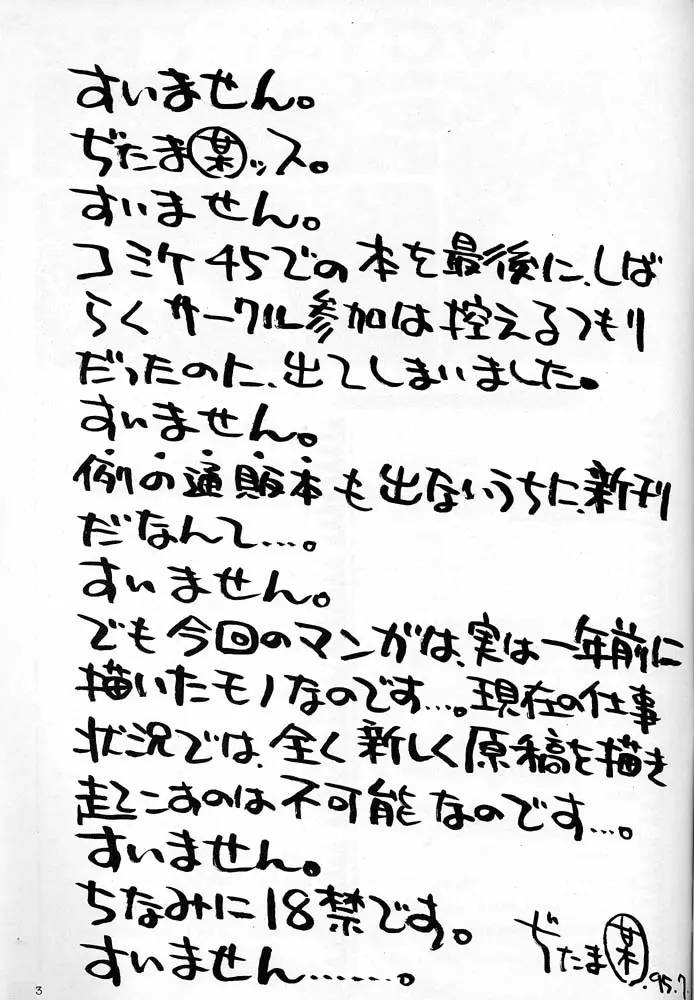 すいません。
ぢたま某ッス。
すいません。
コミケ45での本を最後に、しば
らくサークル参加は控えるつもり
だったのに、出てしまいました。
すいません。
例の通販本も出ないうちに、新刊
だなんて…。
すいません。
でも今回のマンガは、実は一年前に
描いたモノなのです…。現在の仕事
状況では、全く新しく原稿を描き
起こすのは不可能なのです…。
すいません。
ちなみに18禁です。
すいません……。
ぢたま某
.95.7.
3